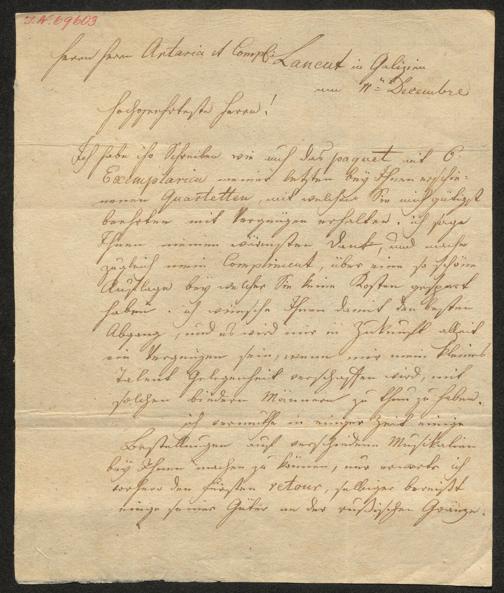 I.N. 69603
Herrn Herrn Artaria et Comp: Lancut in Galizien
am 11n Decembre
Hochgeehrteste Herrn!
Ich habe ihr Schreiben wie auch das paquet mit 6
Exemplarien meiner letzten bey Ihnen erschie-
nenen Quartetten, mit welchen Sie mich gütigst
beehrten mit Vergnügen erhalten. ich sage
Ihnen meinen wärmsten Dank, und mache
zugleich mein Compliment, über eine so schöne
Auflage bey welcher Sie keine Kosten gespart
haben. ich wünsche Ihnen damit den besten
Abgang, und es wird mir in Zukunft allzeit
ein Vergnügen sein, wenn mir mein kleines
Talent Gelegenheit verschaffen wird, mit
solchen biedern Männern zu thun zu haben.
ich vermuthe in einiger Zeit einige
Bestellungen auf verschiedene Musikalien
bey Ihnen machen zu können, nur erwarte ich
vorher den Fürsten retour, selbiger bereißt
einige seiner Güter an der rußischen Gränze.